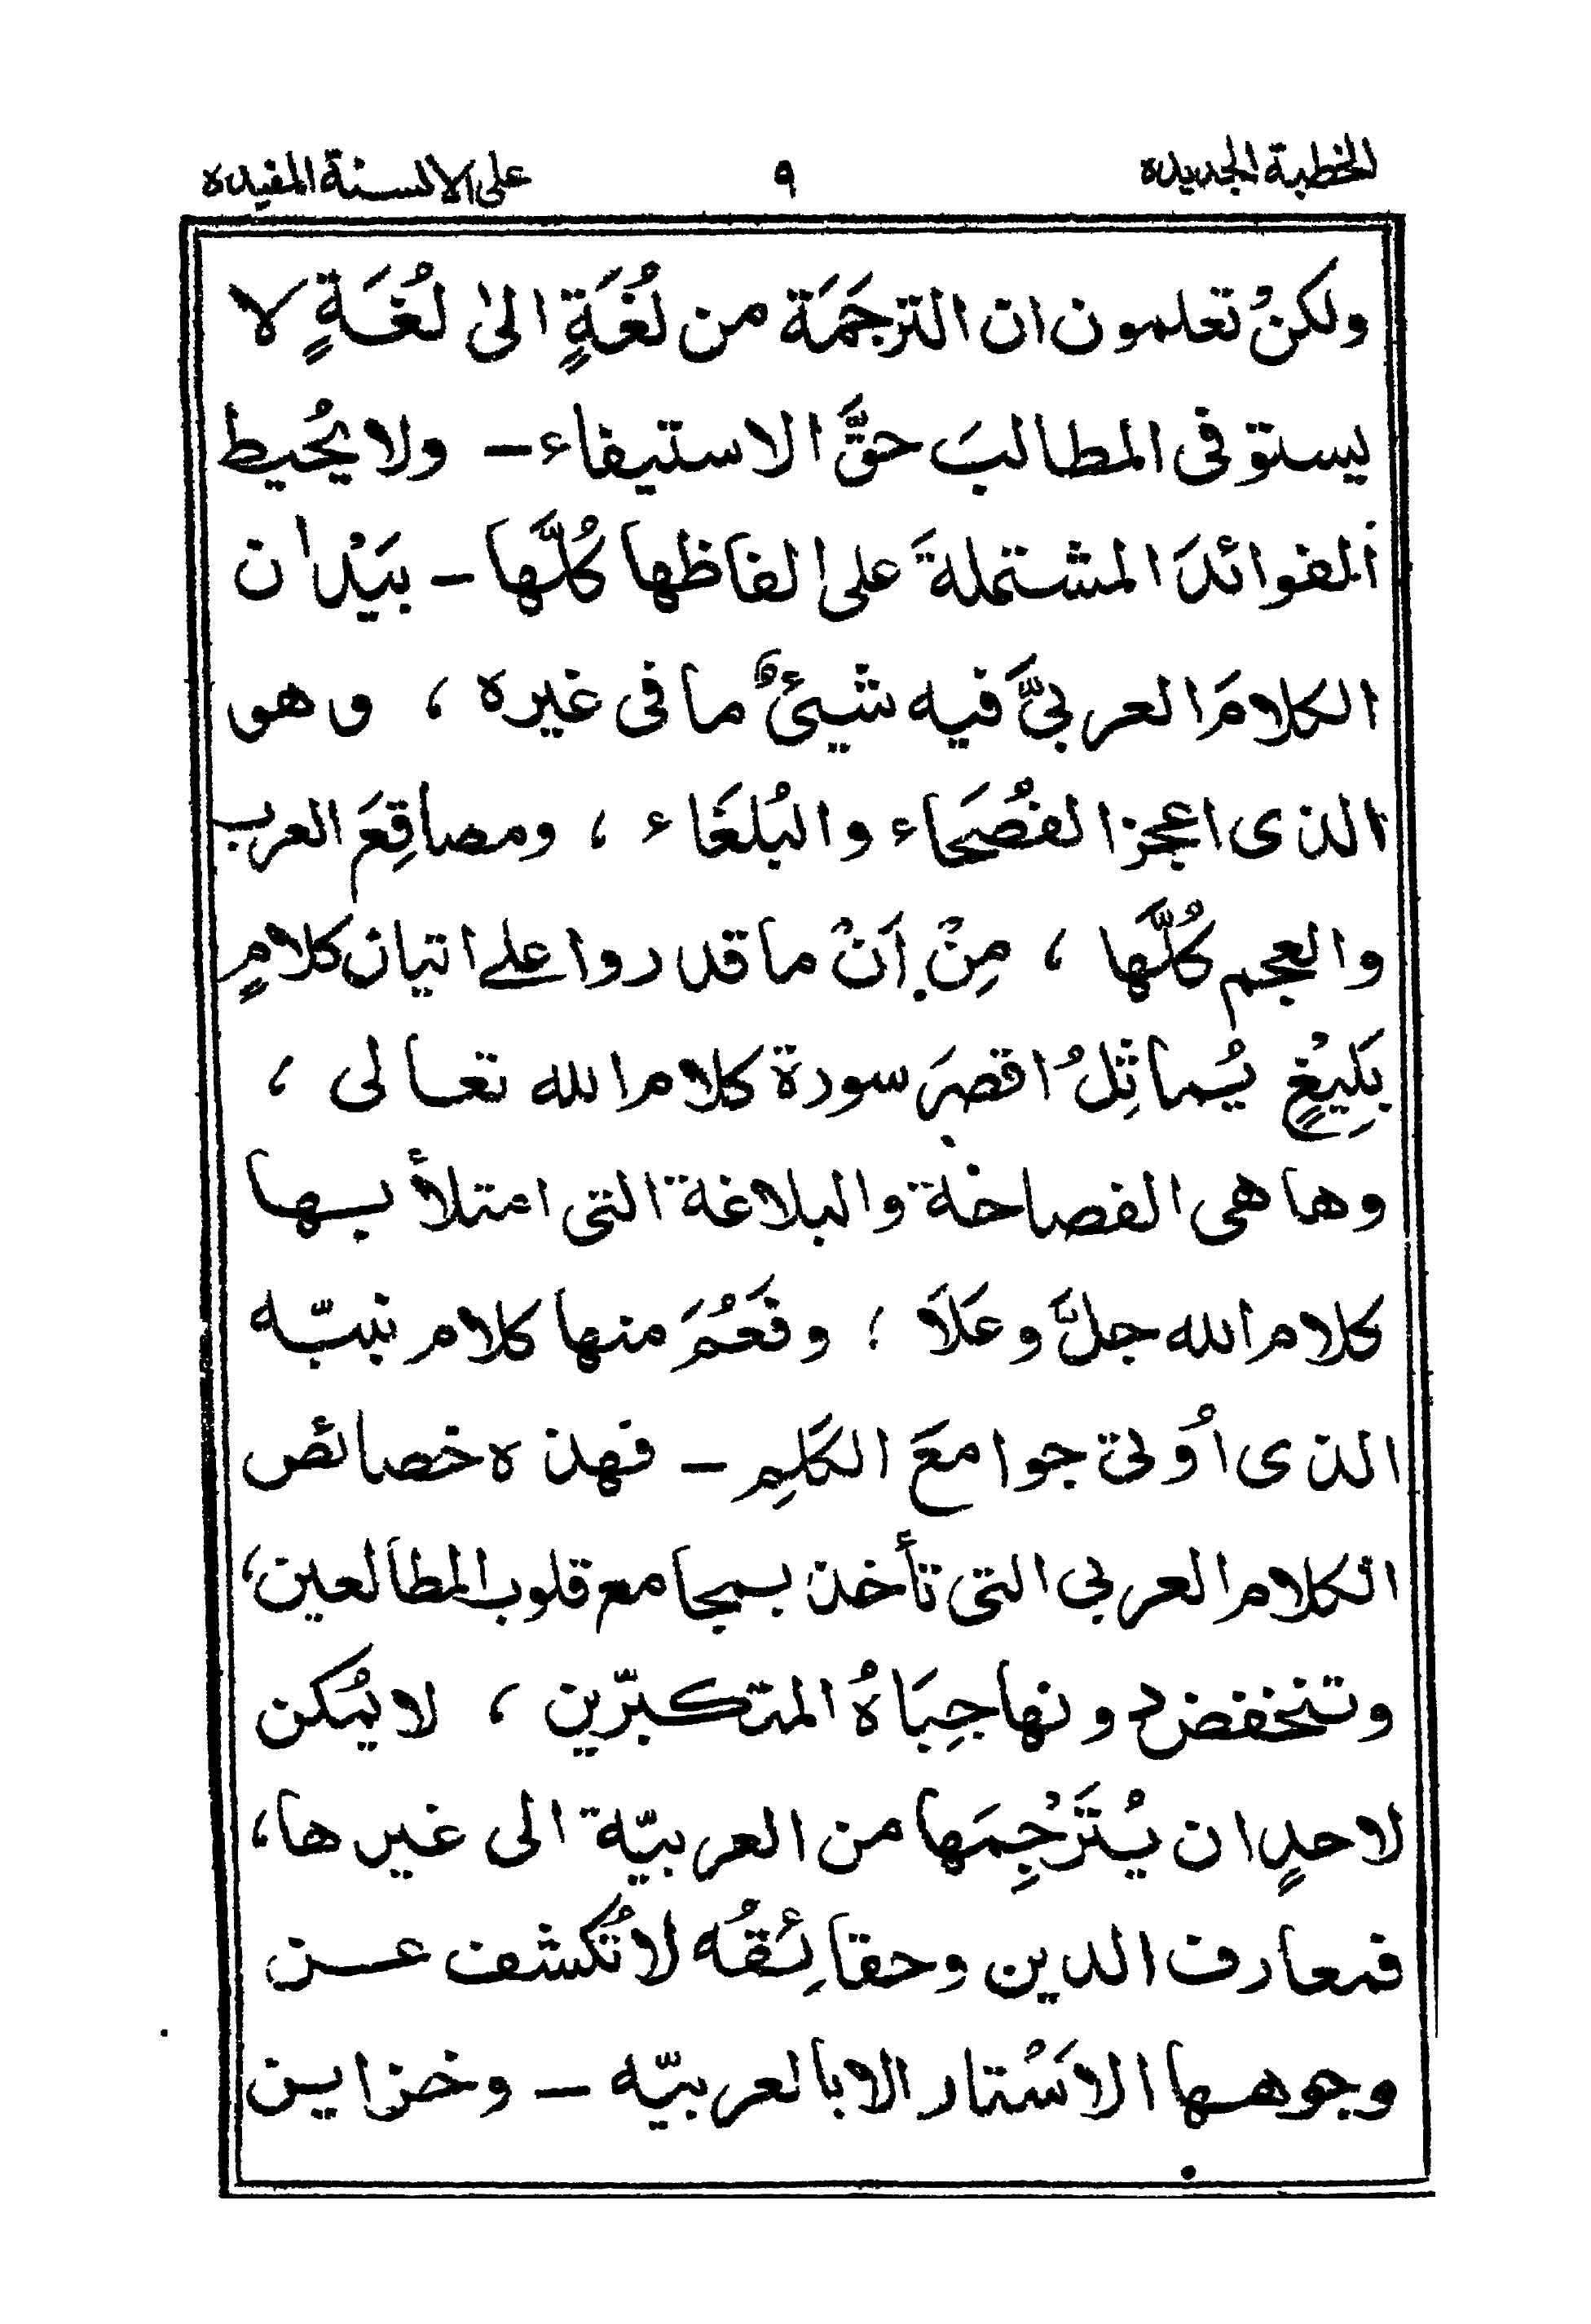 الخطبة الجديده ٩ على الالسنة المفيده
ولكنْ تعلمون ان الترجَمَة من لُغَةٍ الىٰ لُغَةٍ لا
يستوفى المطالبَ حقَّ الاستيفاء – ولا يُحيط
الفوائدَ المشتملةَ على الفاظها كُلَّها – بَيْدان
الكلامَ العربيَّ فيه شيئٌ ما فى غيره ، وهو
الذى اعجز الفُصَحاء والبُلغَاء ، ومصاقِعَ العرب
والعجم كُلَّها ، مِنْ اَنْ ما قدروا على اتيان كلامٍ
بَلِيْغٍ يُماثِلُ اقصرَ سورة كلام الله تعالى ،
وها هى الفصاخة والبلاغة التى امتلأ بها
كلام الله جلَّ وعَلَا ، وفَعُمَ منها كلام نبيّه
الذى اُوتى جوامعَ الكَلِمِ – فهذه خصائص
الكلام العربي التى تأخذ بمجامع قلوب المطالعين ،
وتنخفض دونها جِبَاهُ المتكبّرين ، لا يُمكن
لاحدٍ ان يُتَرْجِمَها من العربيّة الى غيرها ،
فمعارف الدين وحقائِقُه لا تُكشف عن
وجوهها الاَسْتار الا بالعربيّه – وخزاين